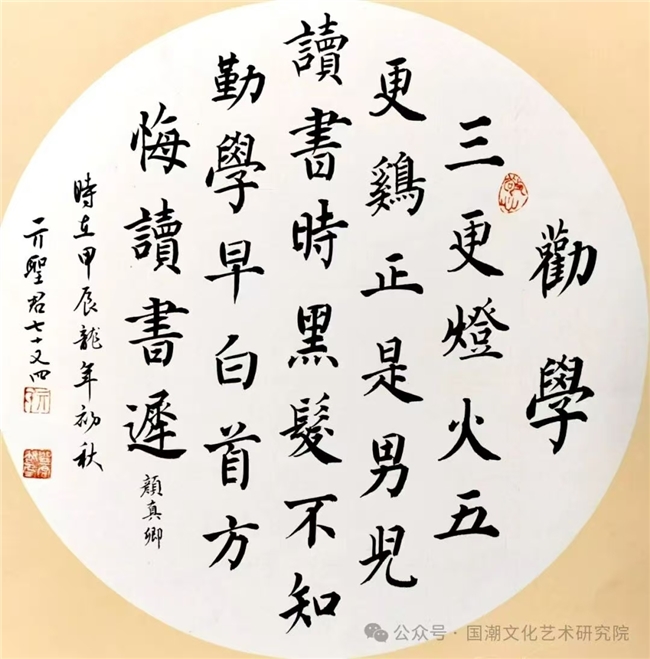 勸學
三更燈火五
更鷄正是男児
讀書時黑髮不知
勤學早白首方
悔讀書遲
顏真卿
時在甲辰龍年初秋
亓聖君七十又四
公众号·国潮文化艺术研究院